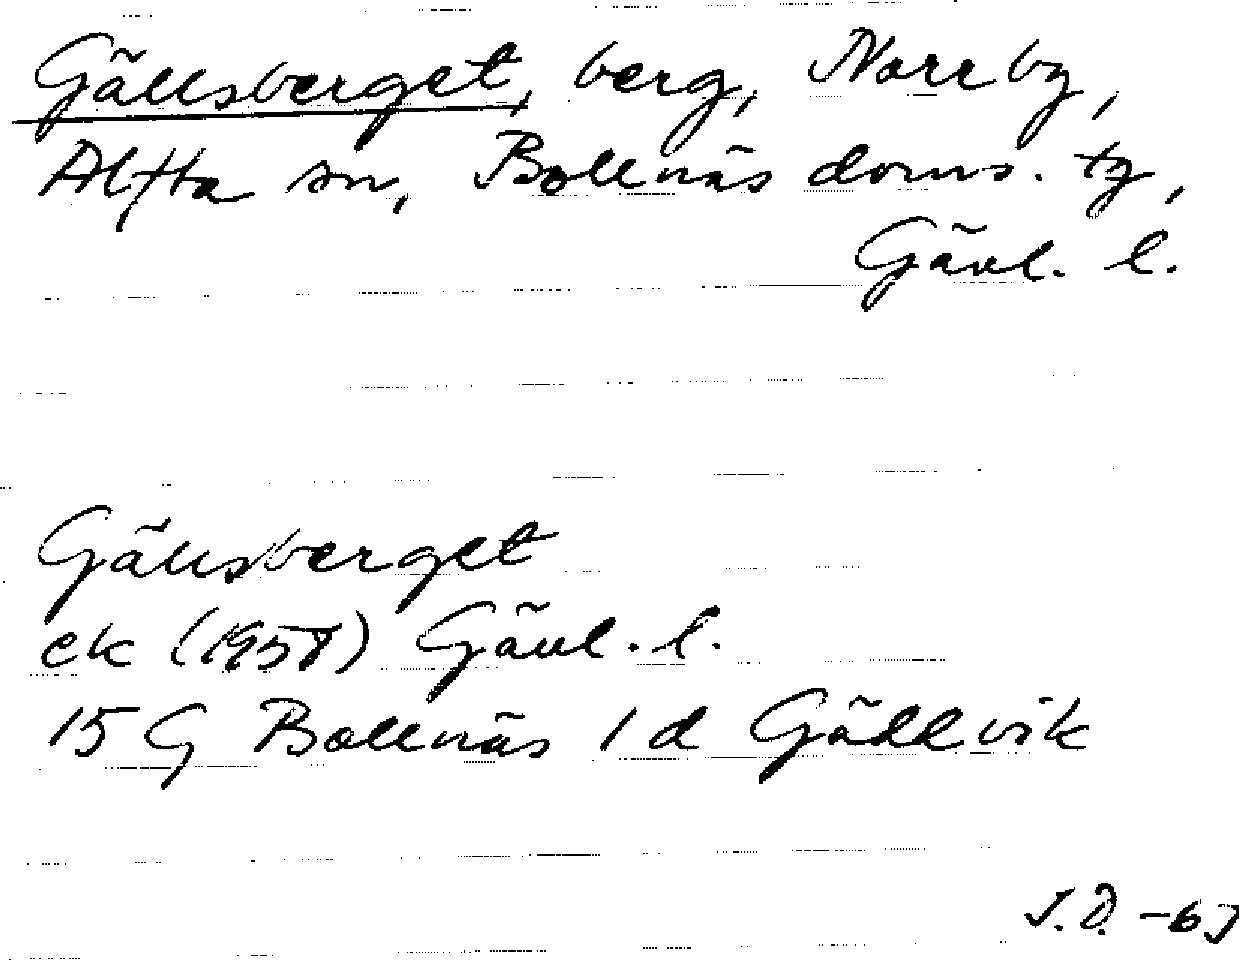 Gällsberget, berg, Norrby,
Alfta sn, Bollnäs doms. tg,
Gävl. l.
Gällsberget
ek (1958) Gävl. l.
15 G Bollnäs 1 d Gällvik